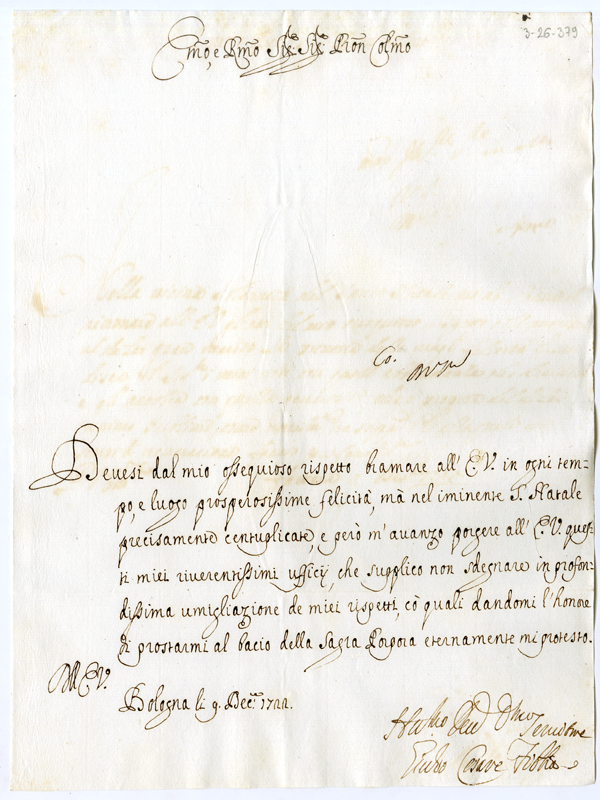 3-26-379
Emo, e Rmo Sig:r Sig:r Pron Colmo
Co.
Devesi dal mio ossequioso rispetto bramare all' E.V. in ogni tem-
po, e luogo prosperosissime felicità, mà nel iminente S. Natale
precisamente centuplicate, e però m'auanzo porgere all' E.V. ques-
ti miei riverentissimi ufficij, che supplico non sdegnare in profon-
dissima umigliazione de miei rispetti, cò quali dandomi l'honore
di prostarmi al bacio della Sagra Porpora eternamente mi protesto.
Dll E.V.
Bologna li 9. Dec:e 1722.
Humo Deuo Obmo Seruitore
Giulio Cesare Fibbia